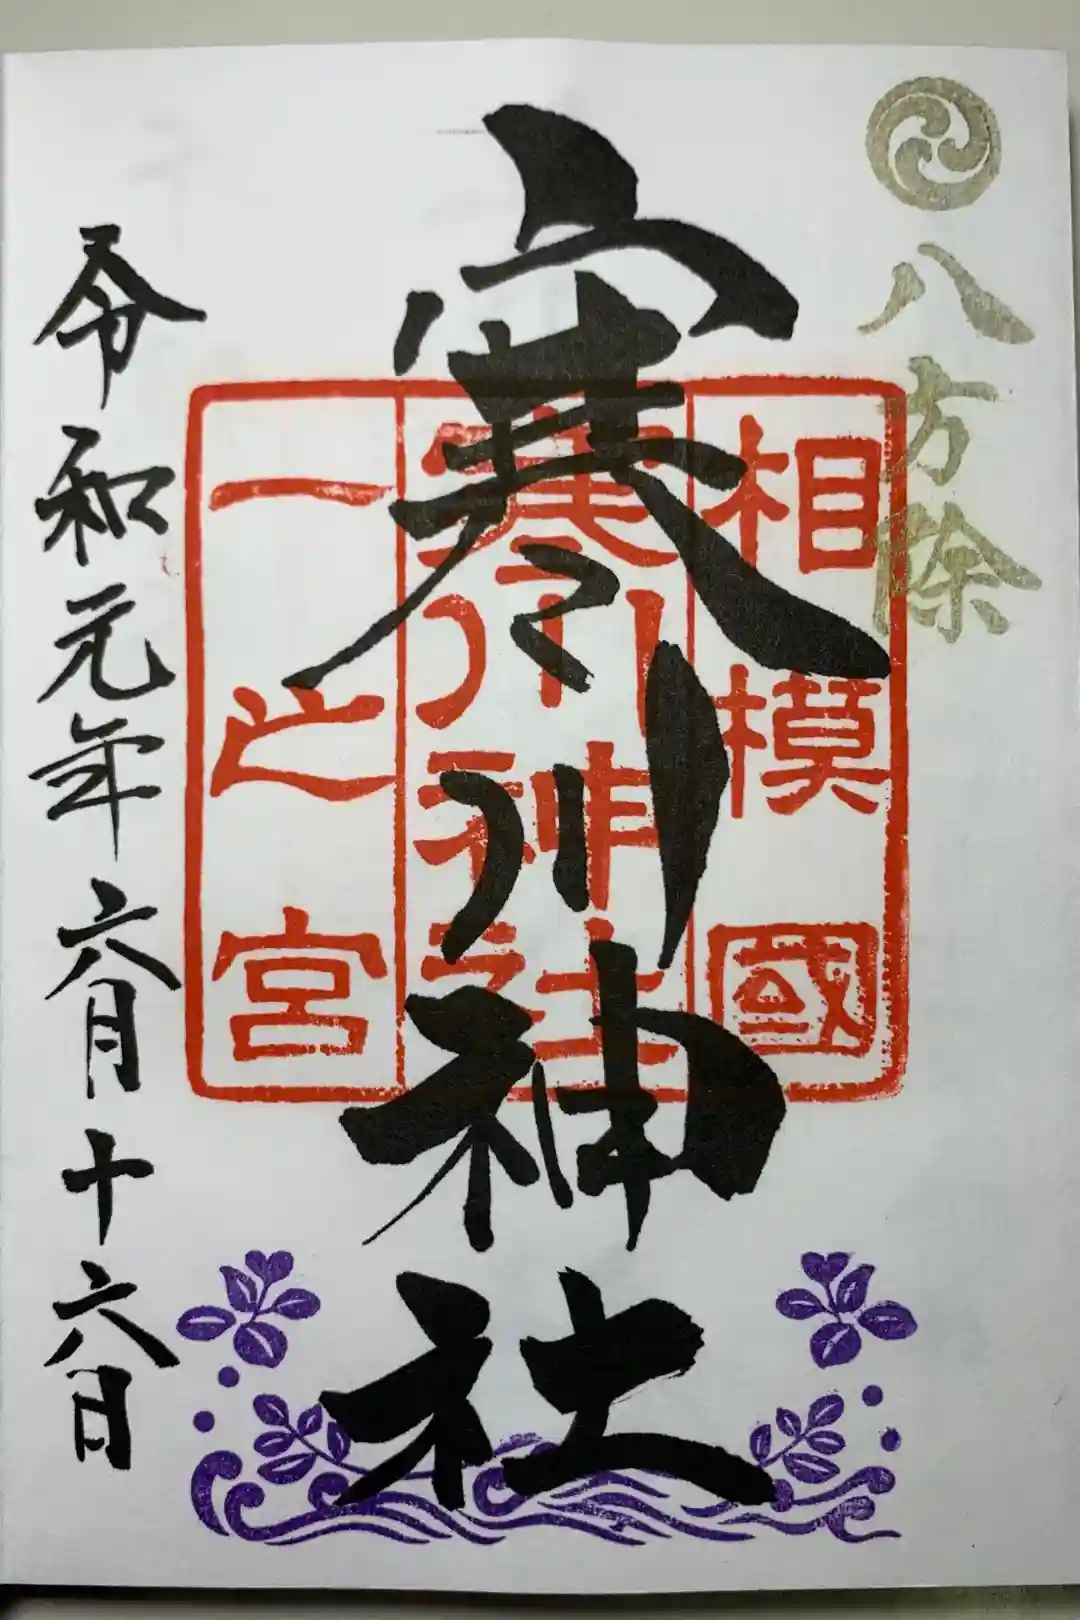 八方除
寒川神社
相模國
寒川神社
一之宮
令和元年六月十六日